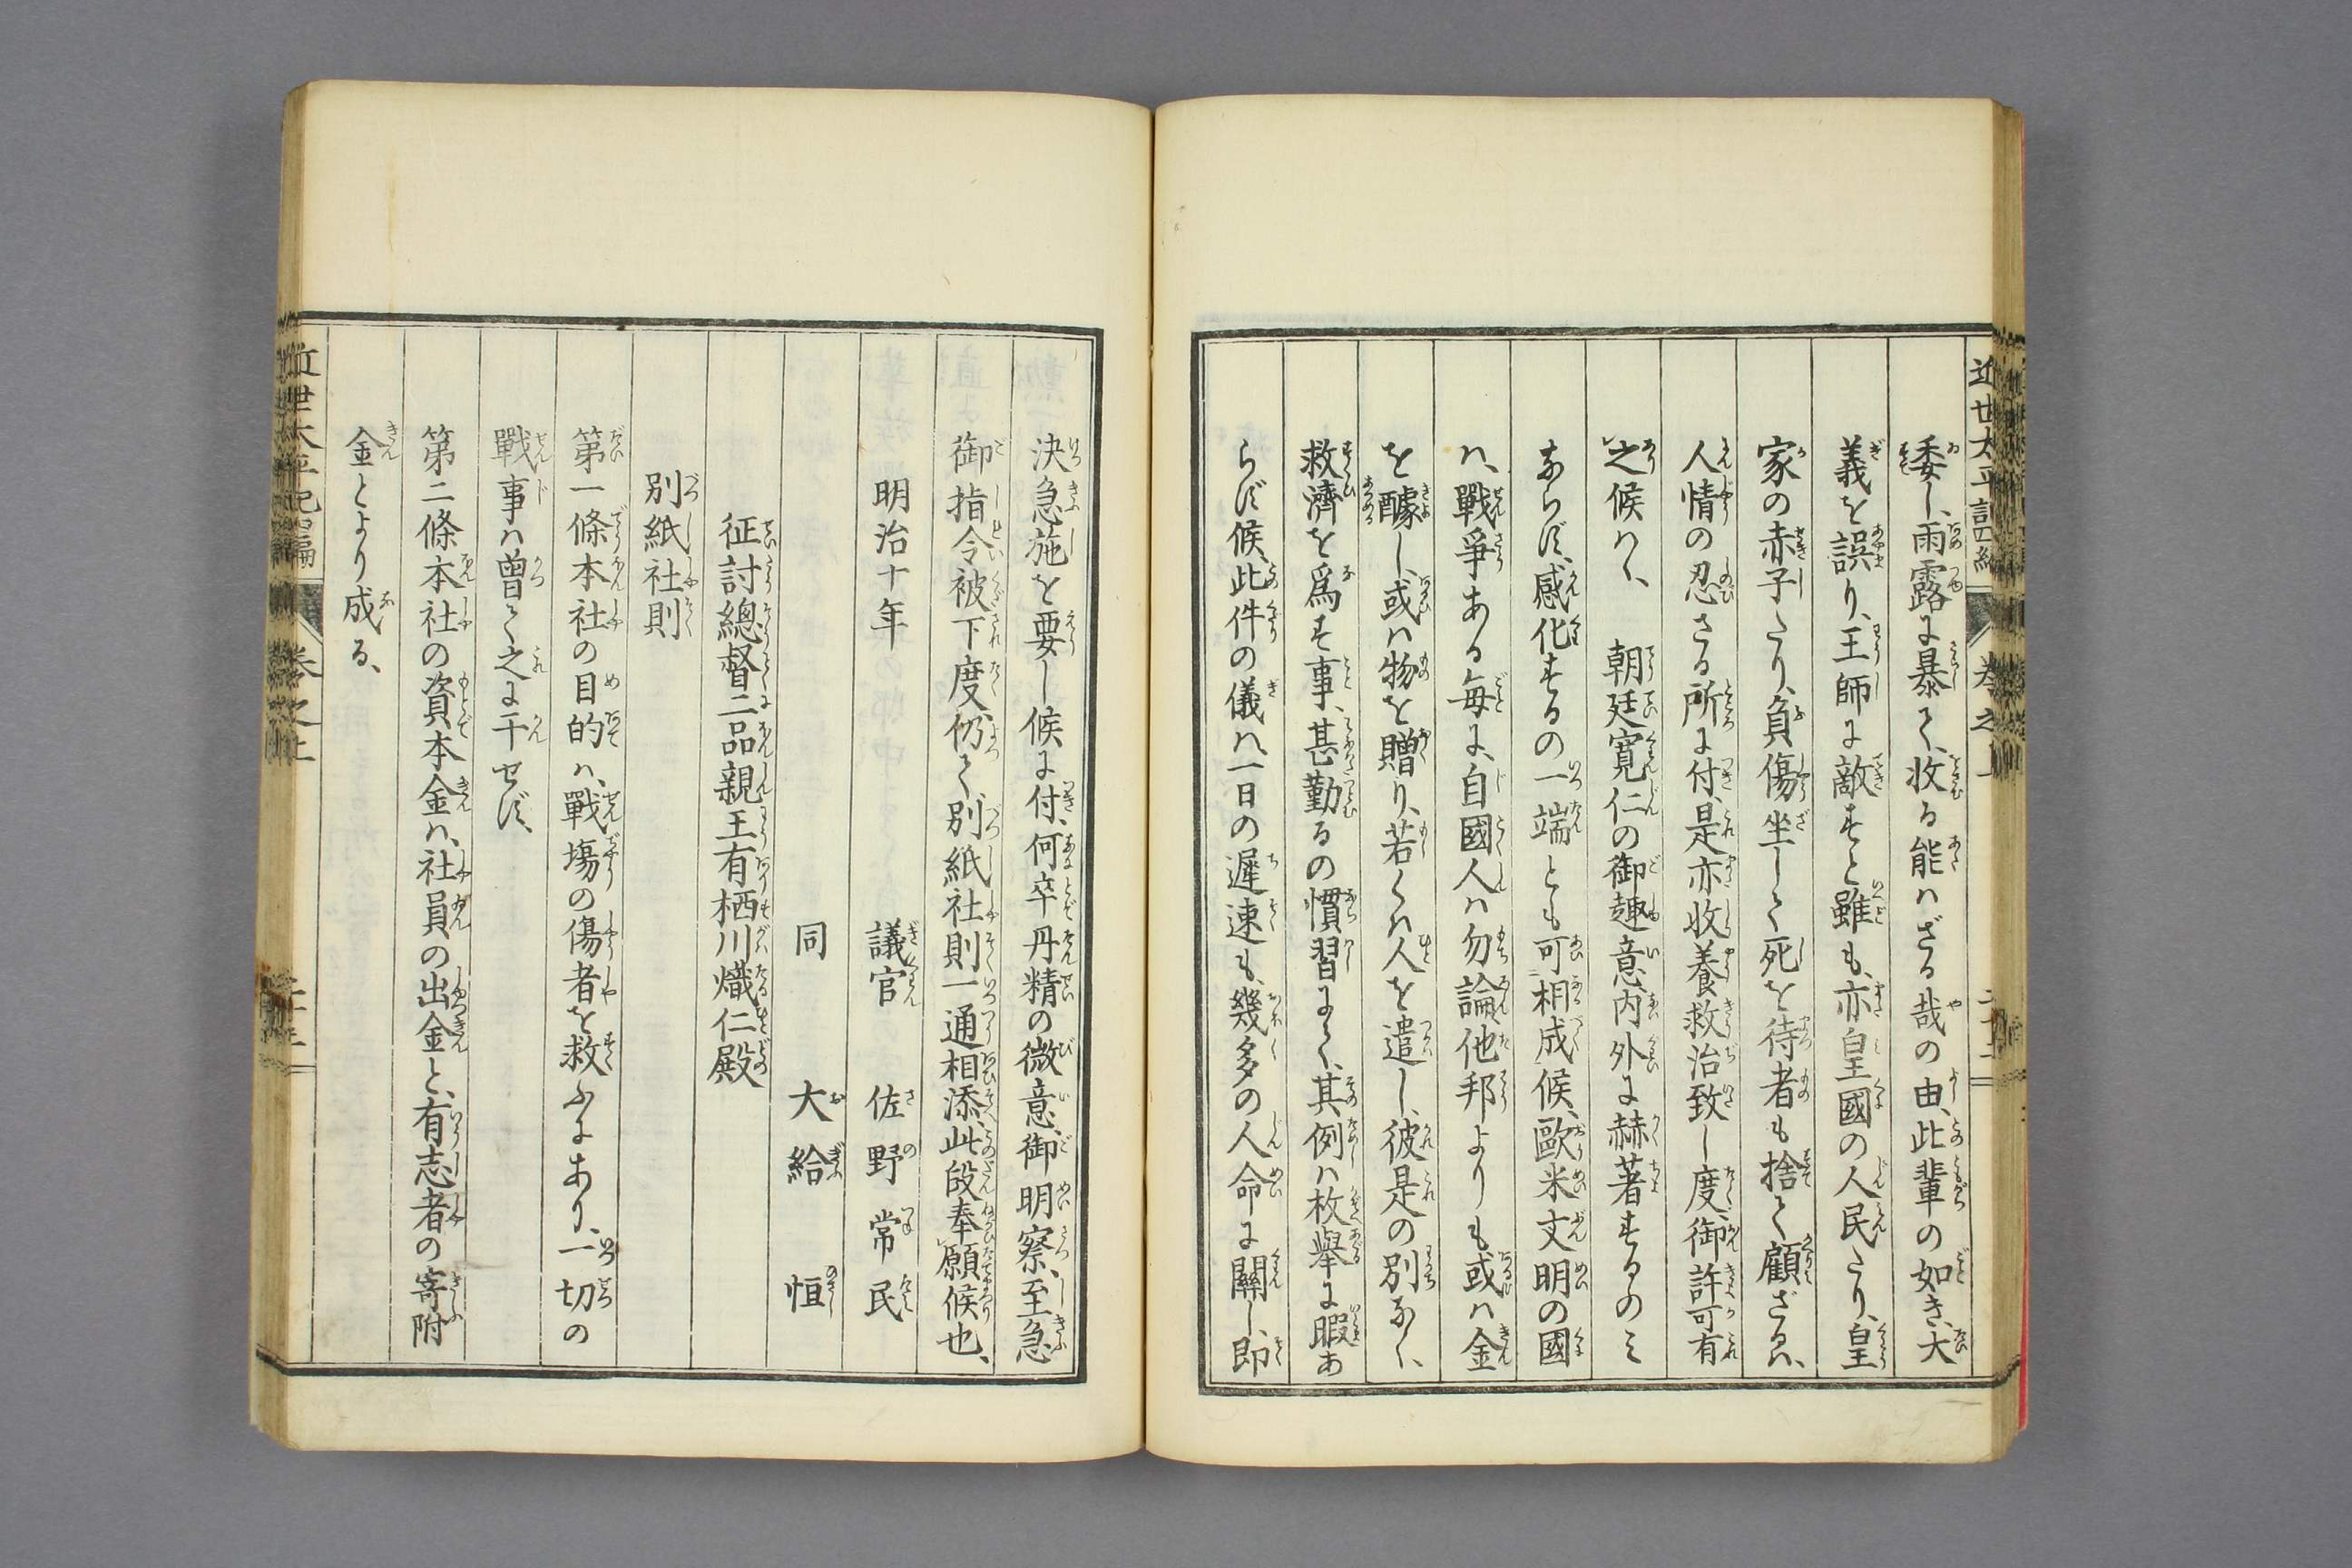 委し、雨露に暴て、收る能はざる哉の由、此輩の如き、大
義を誤り、王師に敵すと雖も、亦皇國の人民たり、皇
家の赤子たり、負傷坐して死を待者も捨て顧ざるハ、
人情の忍さる所に付、是亦收養救治致し度、御許可有
之候ハゝ、朝廷寛仁の御趣意、内外に赫著するのミ
ならず、感化するの一端とも可相成候、歐米文明の國
ハ、戰爭ある毎に、自國人ハ勿論、他邦よりも或ハ金
を醵し、或ハ物を贈り、若くハ人を遣し、彼是の別なく、
救濟を爲す事、甚勤るの慣習にて、其例ハ枚擧に暇あ
らず候、此件の儀ハ、一日の遲速も、幾多の人命に關し、即
決急施を要し候に付、何卒丹精の微意、御明察、至急
御指令被下度、仍て別紙社則一通相添、此段奉願候也、
明治十年
議官 佐野常民
同 大給恒
征討總督二品親王有栖川熾仁殿
別紙社則
第一條本社の目的ハ、戰塲の傷者を救ふにあり、一切の
戰事ハ曾て之に干せず、
第二條本社の資本金ハ、社員の出金と、有志者の寄附
金とより成る、
近世太平記 編 卷之上